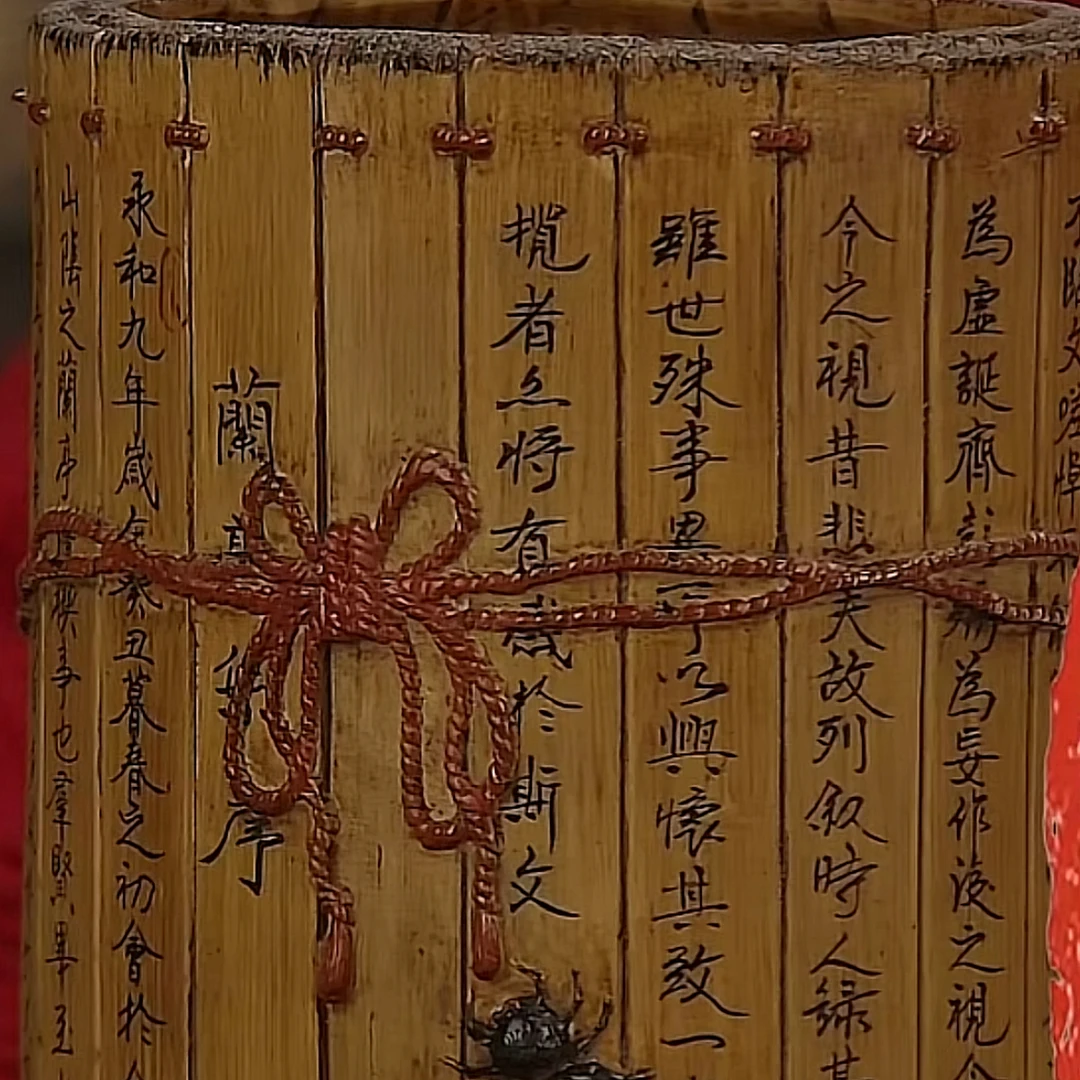 臨文嗟悼不
為虛誕齊彭殤為妄作後之視今
今之視昔悲夫故列叙時人録其
雖世殊事異所以興懷其致一
攬者亦將有感於斯文
蘭亭集序
永和九年歲在癸丑暮春之初會於
山陰之蘭亭脩禊事也羣賢畢至